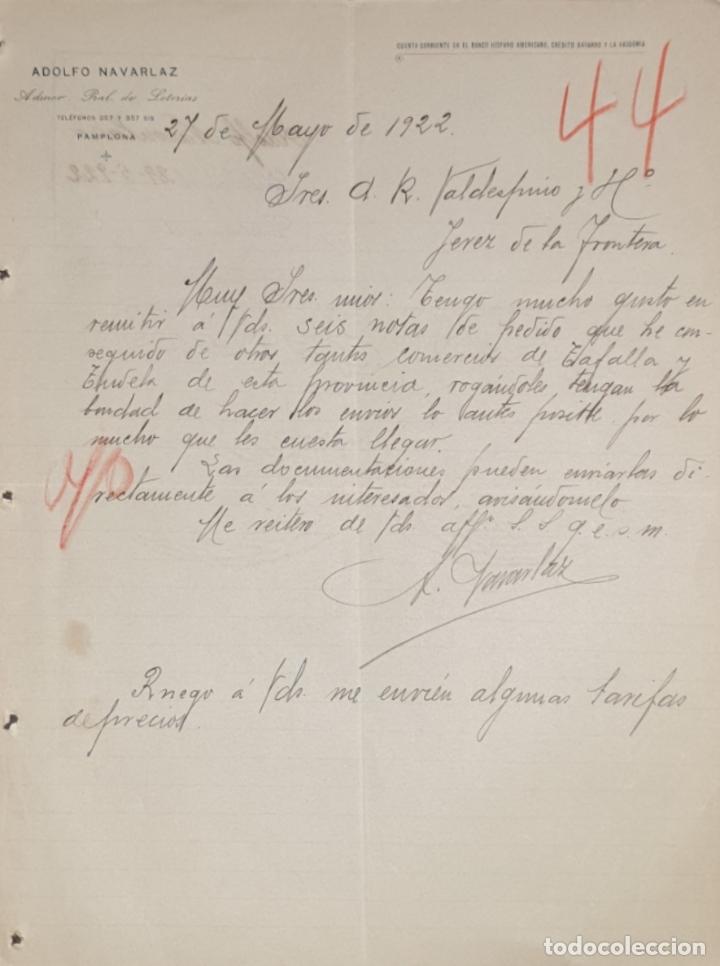 CUENTA CORRIENTE EN EL BANCO HISPANO AMERICANO, CRÉDITO NAVARRO Y LA VASCONIA
ADOLFO NAVARLAZ
Admor. Pral. de Loterías
TELÉFONOS 257 Y 357 BIS
PAMPLONA
44
27 de Mayo de 1922.
Sres. A. R. Valdespino y Hº
Jerez de la Frontera.
Muy Sres. mios: Tengo mucho gusto en
remitir á Vds. seis notas de pedido que he con-
seguido de otros tantos comercios de Tafalla y
Tudela de esta provincia, rogándoles tengan la
bondad de hacer los envíos lo antes posible por lo
mucho que les cuesta llegar.
Las documentaciones pueden enviarlas di-
rectamente á los interesados, avisándomelo
Me reitero de Vds. affº S. S. q. e. s. m.
A. Navarlaz
Ruego á Vds. me envién algunas tarifas
de precios.
todocoleccion.net